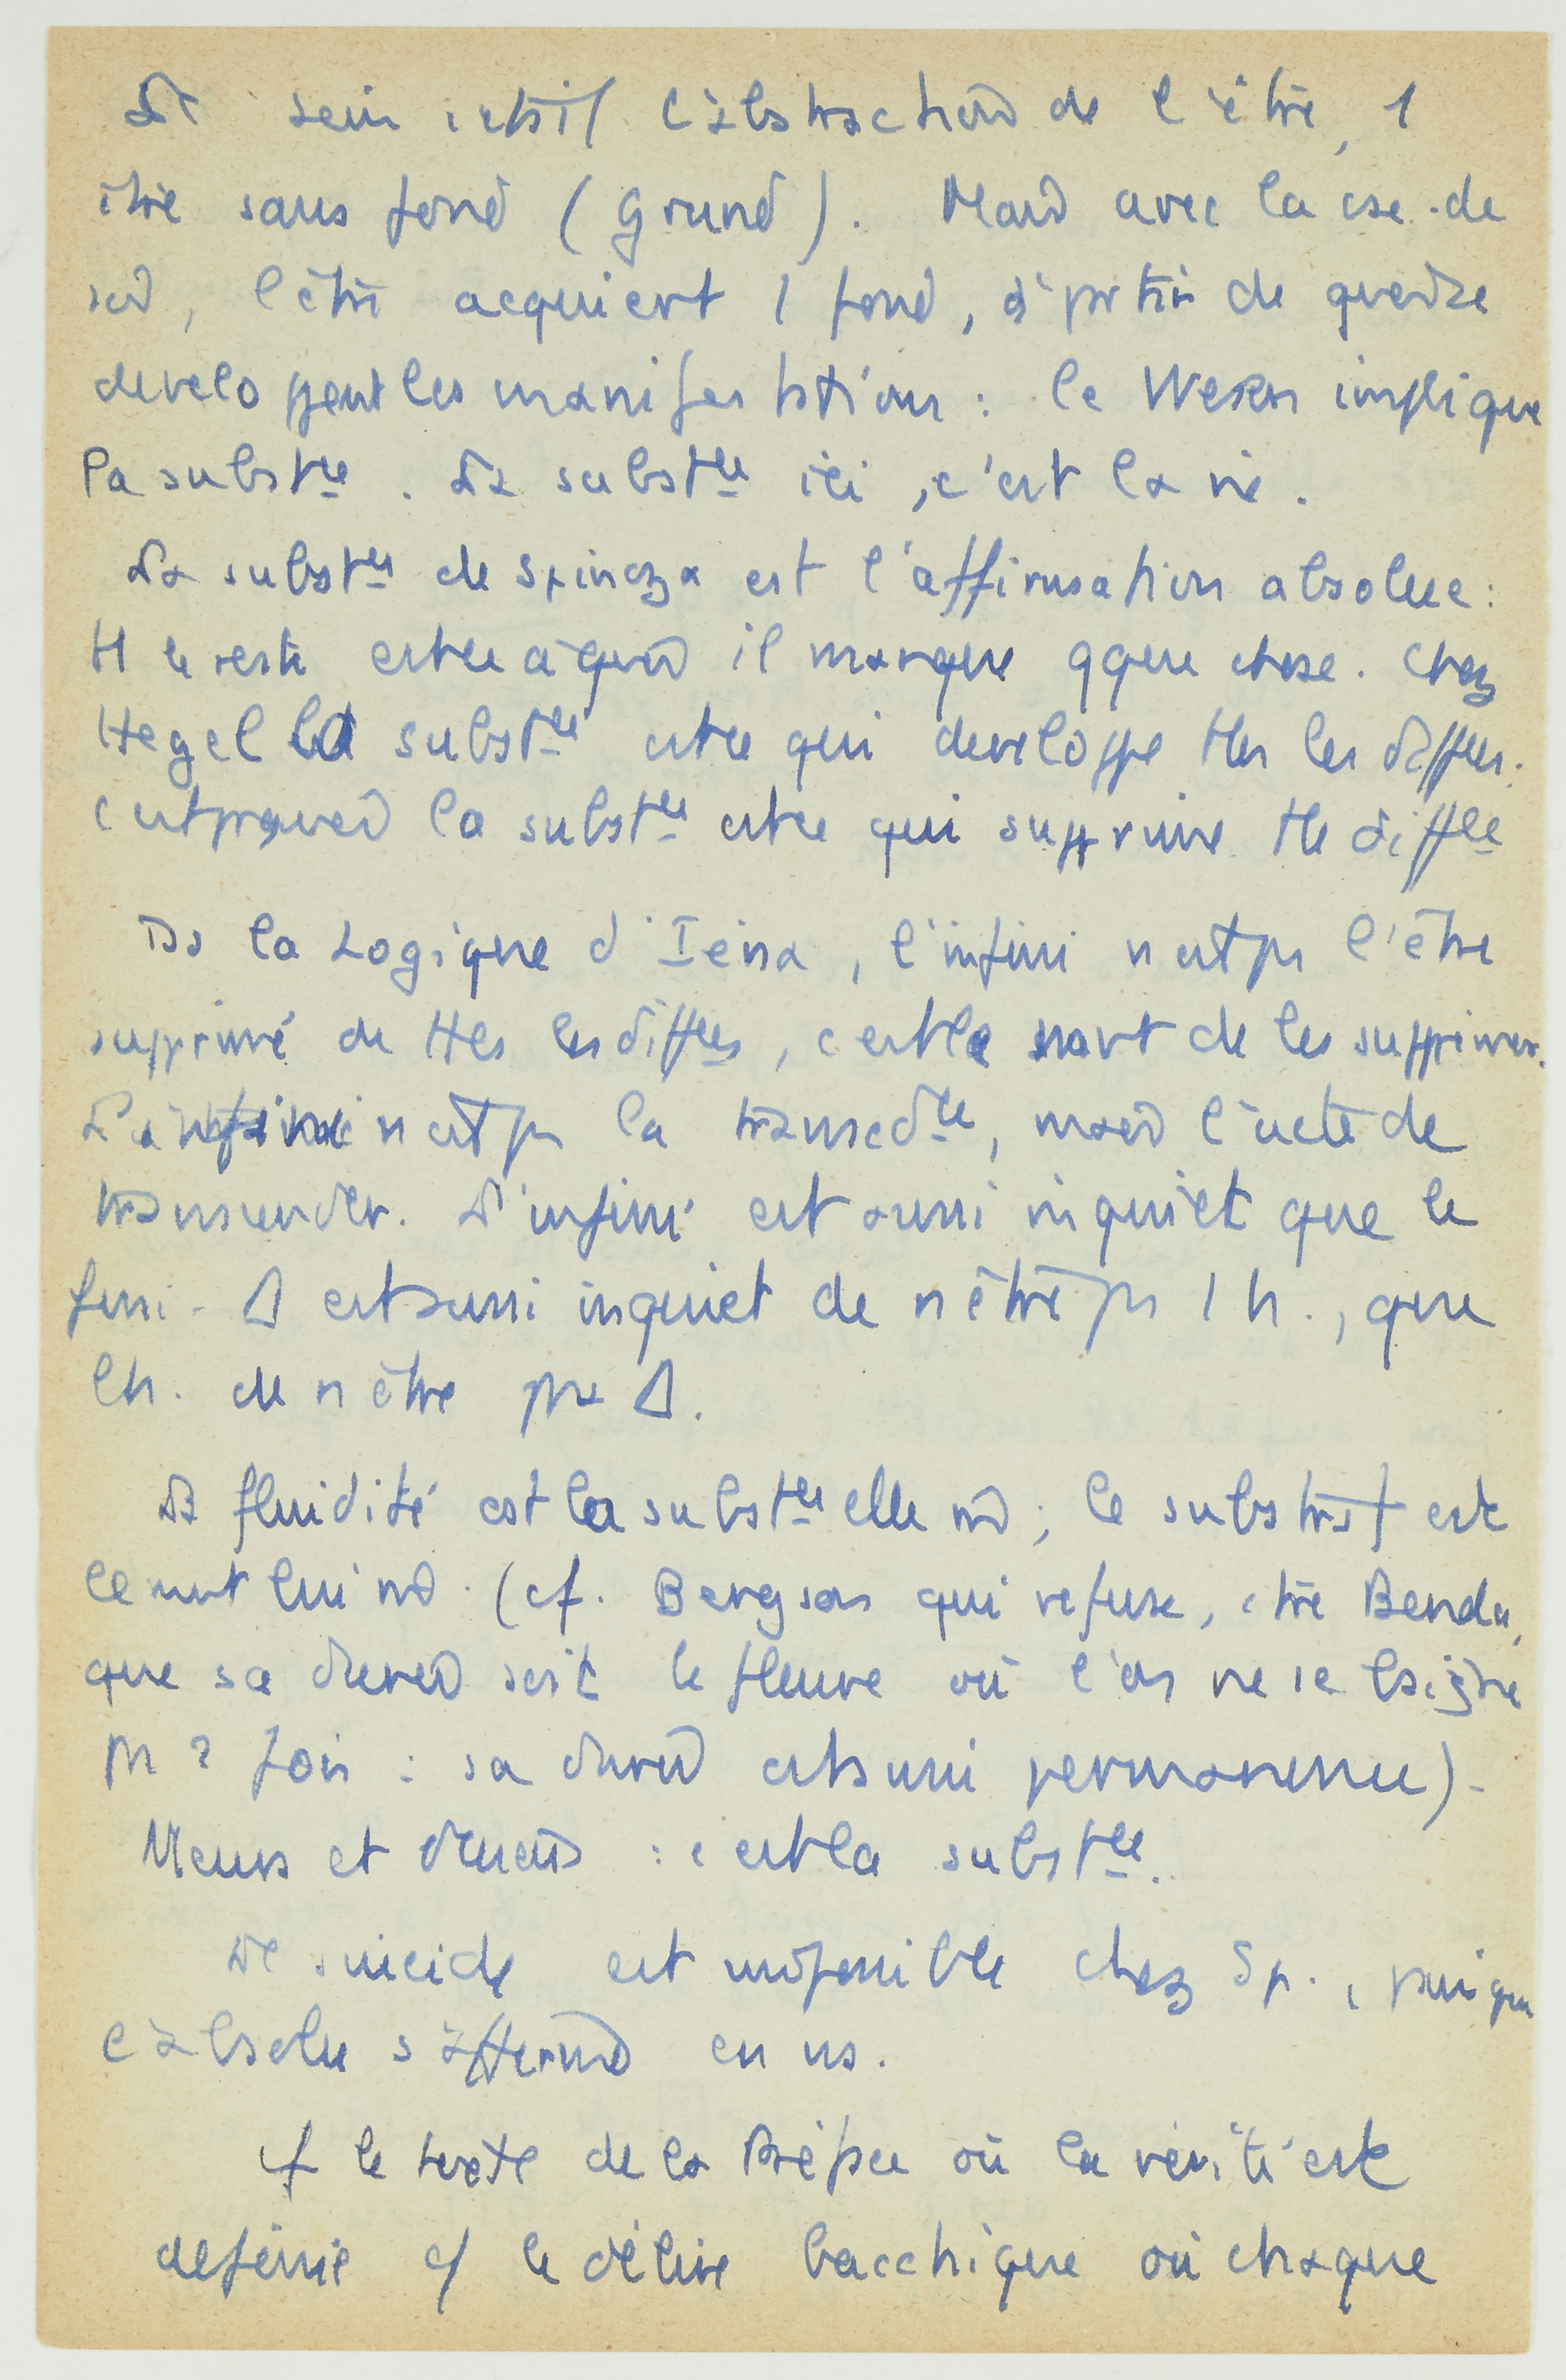 Le sein était l'abstraction de l'être, 1
être sans fond (Grund). Mais avec la cse. de
soi, l'être acquiert 1 fond, à prtir de quoi se
developpent les manifestations : le Wesen implique
la subst^ce. La subst^ce ici, c'est la vie.
La subst^ce de Spinoza est l'affirmation absolue :
tt le reste est ce à quoi il manque qque chose. Chez
Hegel la subst^ce est ce qui developpe ttes les diffces.
c'est pourquoi la subst^ce est ce qui supprime tte diff^ce
Ds la Logique d'Iéna, l'infini n'est ps l'être
supprimé de ttes les diff^ces, c'est le mvt de les supprimer.
L'infini n'est ps la transcd^ce, mais l'acte de
transcender. L'infini est aussi inquiet que le
fini. Δ est aussi inquiet de n'être ps 1 h., que
l'h. de n'être ps Δ.
La fluidité est la subst^ce elle mê ; le substrat est
le mvt lui mê. (cf. Bergson qui refuse, ctre Benda,
que sa durée soit le fleuve où l'on ne se baigne
ps 2 fois : sa durée est aussi permanence).
Meurs et deviens : c'est la subst^ce.
Le suicide est impossible chez Sp., puisque
l'absolu s'affirme en ns.
cf le texte de la Préface où la vérité est
definie c/ le délire bacchique où chaque